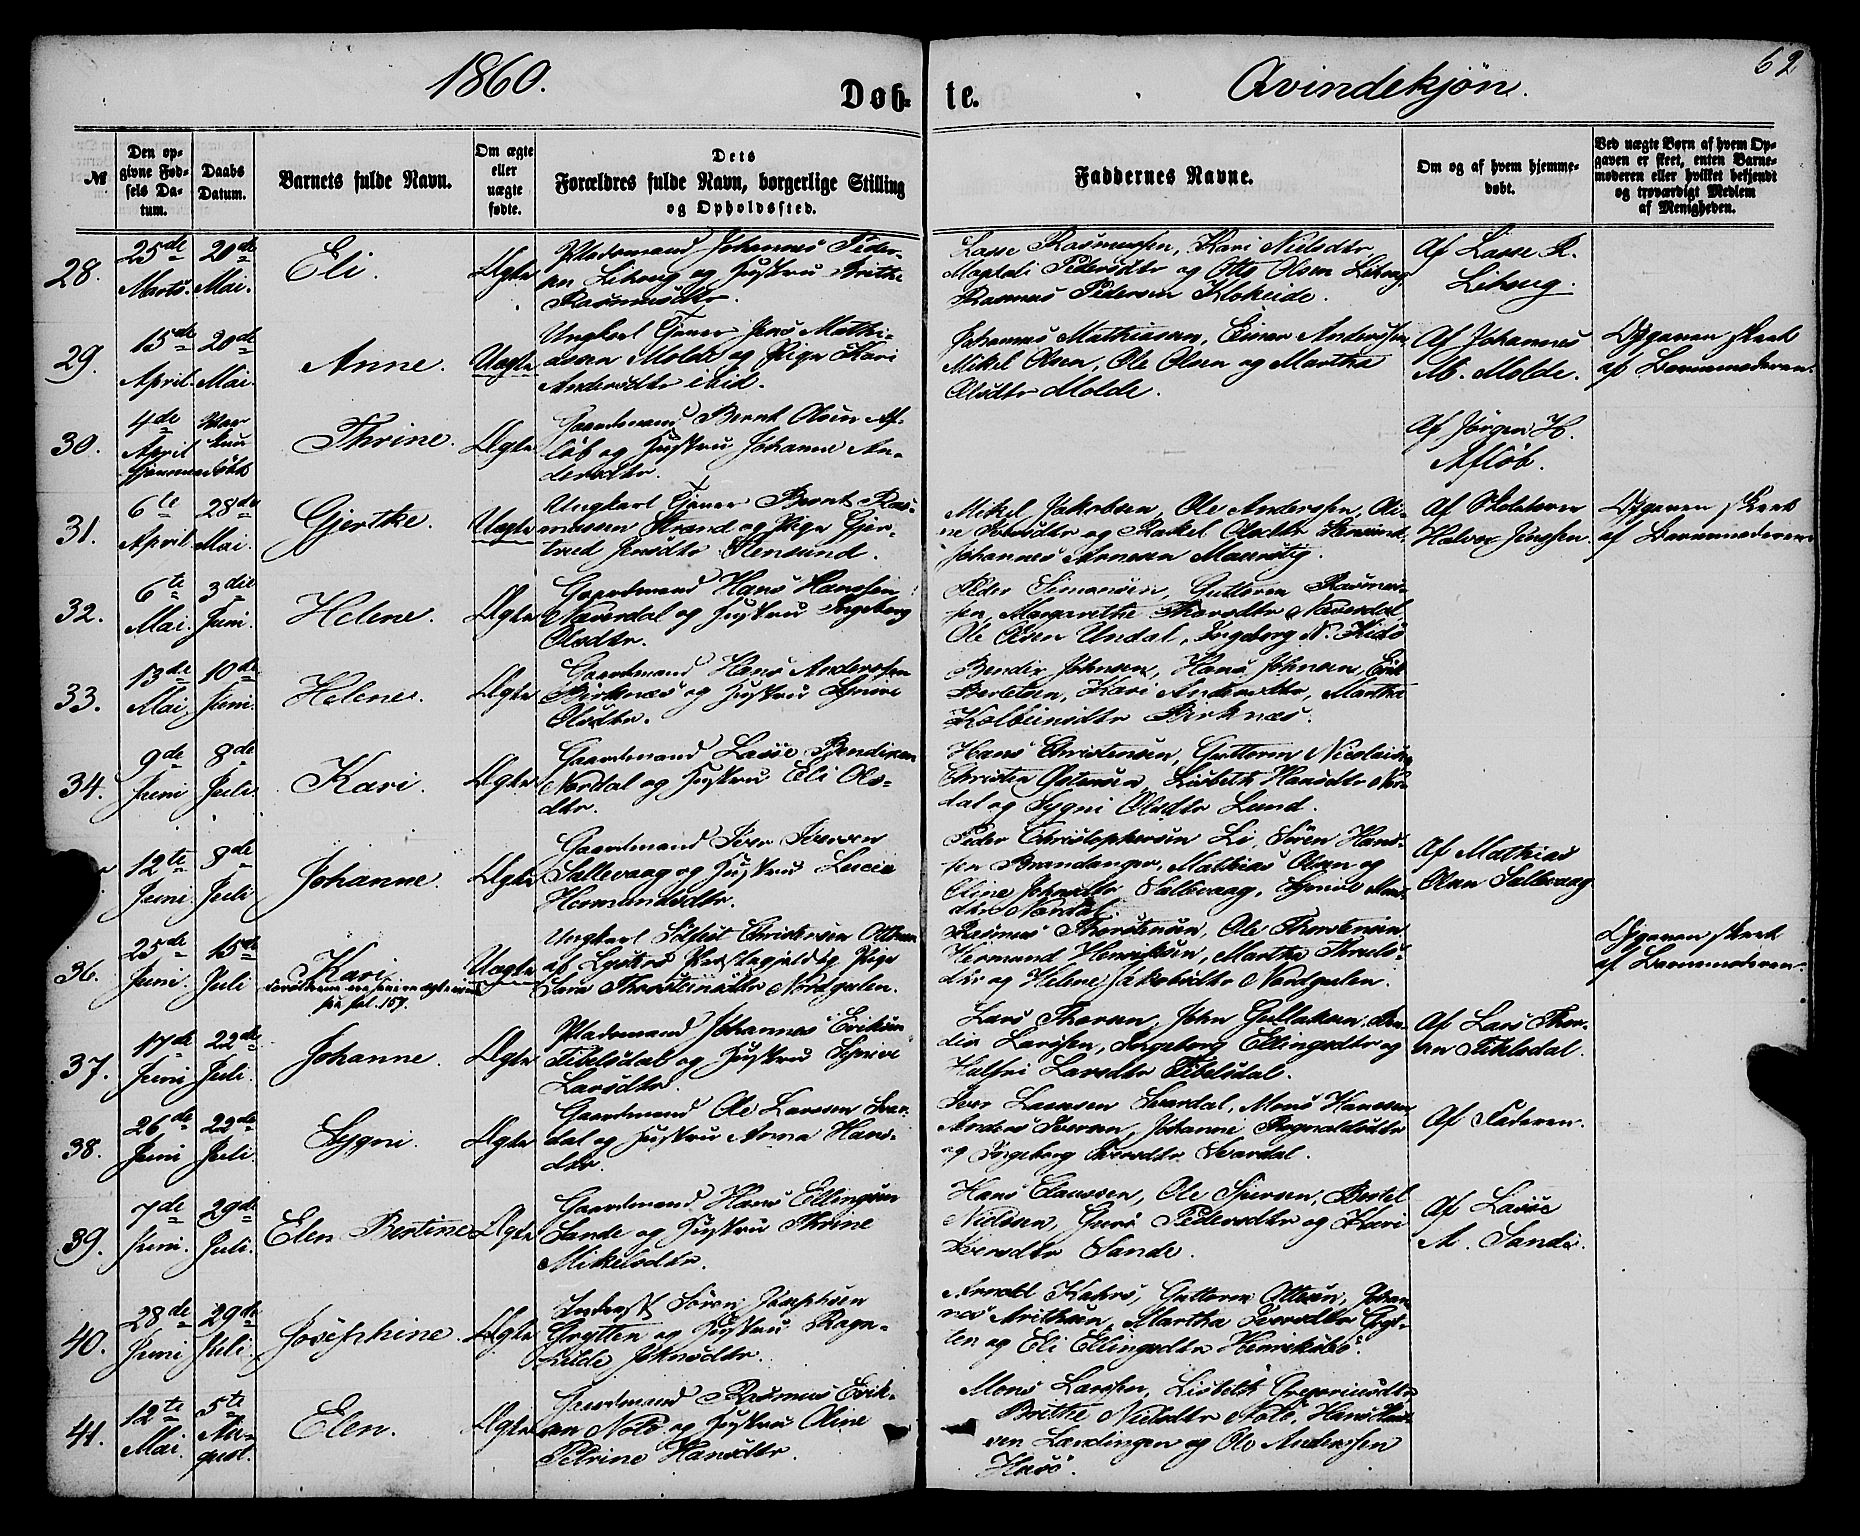 1860.
Døb-
te.
Qvindekjøn.
62
№
Den op-
givne Fød-
sels Da-
tum.
Daabs
Datum.
Barnets fulde Navn.
Om ægte
eller
uægte
fødte.
Dets
Forældres fulde Navn, borgerlige Stilling
og Opholdssted.
Faddernes Navne.
Om og af hvem hjemme-
døbt.
Ved uægte Børn af hvem Op-
gaven er skeet, enten Barne-
moderen eller hvilket bekjendt
og troværdigt Medlem
af Menigheden.
28.
25de
Marts.
20de
Mai.
Eli.
Ægte
Pladsmand Johannes Peder-
sen Lihoug og Hustru Brithe
Rasmusdtr.
Lasse Rasmussen, Kari Nielsdtr
Magtali Pedersdtr og Otto Olsen Lihoug
Rasmus Pedersen Klokeide.
Af Lasse R.
Lihoug.
29.
15de
April.
20de
Mai.
Anne.
Uægte
Ungkarl Tjener Jens Mathi-
assen Molde og Pige Kari
Andersdtr ibid.
Johannes Mathiassen, Einar Anderssen,
Mikel Olsen, Ole Olsen og Martha
Olsdtr Molde.
Af Johannes
M. Molde.
Opgaven skeet
af Barnemoderen.
30.
4de
April
hjemme
døbt
Thrine.
Ægte
Gaardmand Bernt Olsen Af-
løb og Hustru Johanne An-
dersdtr.
Af Jørgen H.
Afløb.
31.
6te
April
28de
Mai.
Gjertke.
Uægte
Ungkarl Tjener Bernt Ras-
mussen Strand og Pige Gjer-
trud Jensdtr Stensund.
Mikel Jakobsen, Ole Anderssen, Oli-
ne Pedersdtr og Rakel Olsdtr Stensund
Johannes Arnesen
Af Skolelærer
Halvor Jenssen.
Opgaven skeet
af Barnemoderen
32.
6te
Mai.
3die
Juni.
Helene.
Ægte
Gaardmand Hans Hanssen
Næverdal og Hustru Ingeborg
Olsdtr.
Peder Simonsen, Guttorm Rasmus-
sen, Margarethe Næverdal
Ole Olsen Undal, Ingeborg N.
33.
13de
Mai.
10de
Juni.
Helene.
Ægte
Gaardmand Hans Anderssen
Birknæs og Hustru Synneve
Olsdtr.
Bendix Johnsen, Hans Johnsen, Erik
Bertelsen, Kari Andersdtr, Martha
Kolbeinsdtr Birknæs.
34.
9de
Juni
8de
Juli
Kari.
Ægte
Gaardmand Lasse Bendixen
Nordal og Hustru Eli Ols-
dtr.
Hans Christensen, Guttorm Nicolaisen
Christen Ostensen, Lisbeth Hansdtr Nor-
dal og Sygni Olsdtr Lund.
12te
Juni.
8de
Juli
Johanne.
Ægte
Gaardmand Iver Iversen
Sollevaag og Hustru Lucia
Hermundsdtr.
Peder Christophersen Li, Søren Hans-
sen Brandanger, Mathias Olsen og
Oline Johnsdtr Sollevaag,
dtr Nordal.
Af Mathias
Olsen Sollevaag
36.
25de
Juni.
15de
Juli
Kari
fol. 157.
Uægte
Ungkarl Solfest Christensen
af Lysters Præstegjeld og Pige
Sara Thorstensdtr Nordgulen.
Rasmus Thorstensen, Ole Thorstensen
Hermund Henriksen, Martha
dtr og Helene Jakobsdtr Nordgulen.
Opgaven skeet
af Barnemoderen.
37.
17de
Juni
22de
Juli.
Johanne.
Ægte
Pladsmand Johannes Eriksen
Tibelsdal og Hustru Synneve
Larsdtr.
Lars Thoresen, John Gullaksen, Ben-
dix Larssen, Ingeborg Ellingsdtr og
Halfri Larsdtr Tibelsdal.
Af Lars Thor-
sen Tibelsdal.
38.
26de
Juni
22de
Juli.
Sygni.
Ægte
Gaardmand Ole Larssen Svar-
dal og Hustru Anna Hans-
dtr.
Iver Larssen Svardal, Mons Hanssen
Anders Iversen, Johanne Rognaldsdtr
og Ingeborg Iversdtr Svardal.
Af Faderen.
39.
7de
Juni.
29de
Juli.
Elen Bertine
Ægte
Gaardmand Hans Ellingsen
Sande og Hustru Thrine
Mikkelsdtr.
Hans Claussen, Ole Sjursen, Bertel
Nielssen, Guro Pedersdtr og Kari
Iversdtr Sande.
Af Lasse
A. Sande.
40.
28de
Juni
29de
Juli.
Josephine.
Ægte
Inderst Søren Josephsen
Grytten og Hustru Ragn-
hilde Johnsdtr.
Arnold Kahrs, Guttorm Ottesen, Johan-
nes Arethsen, Martha Iversdtr Gryt-
ten og Eli Ellingsdtr Henriksbø.
41.
12te
Mai.
5te
Au-
gust.
Elen.
Ægte
Gaardmand Rasmus Erik-
sen Notø og Hustru Oline
Petrine Hansdtr.
Mons Larssen, Lisbeth Gregoriusdtr
Brithe Nielsdtr Notø, Hans
sen Lardingen og Ole Anderssen
Husø.